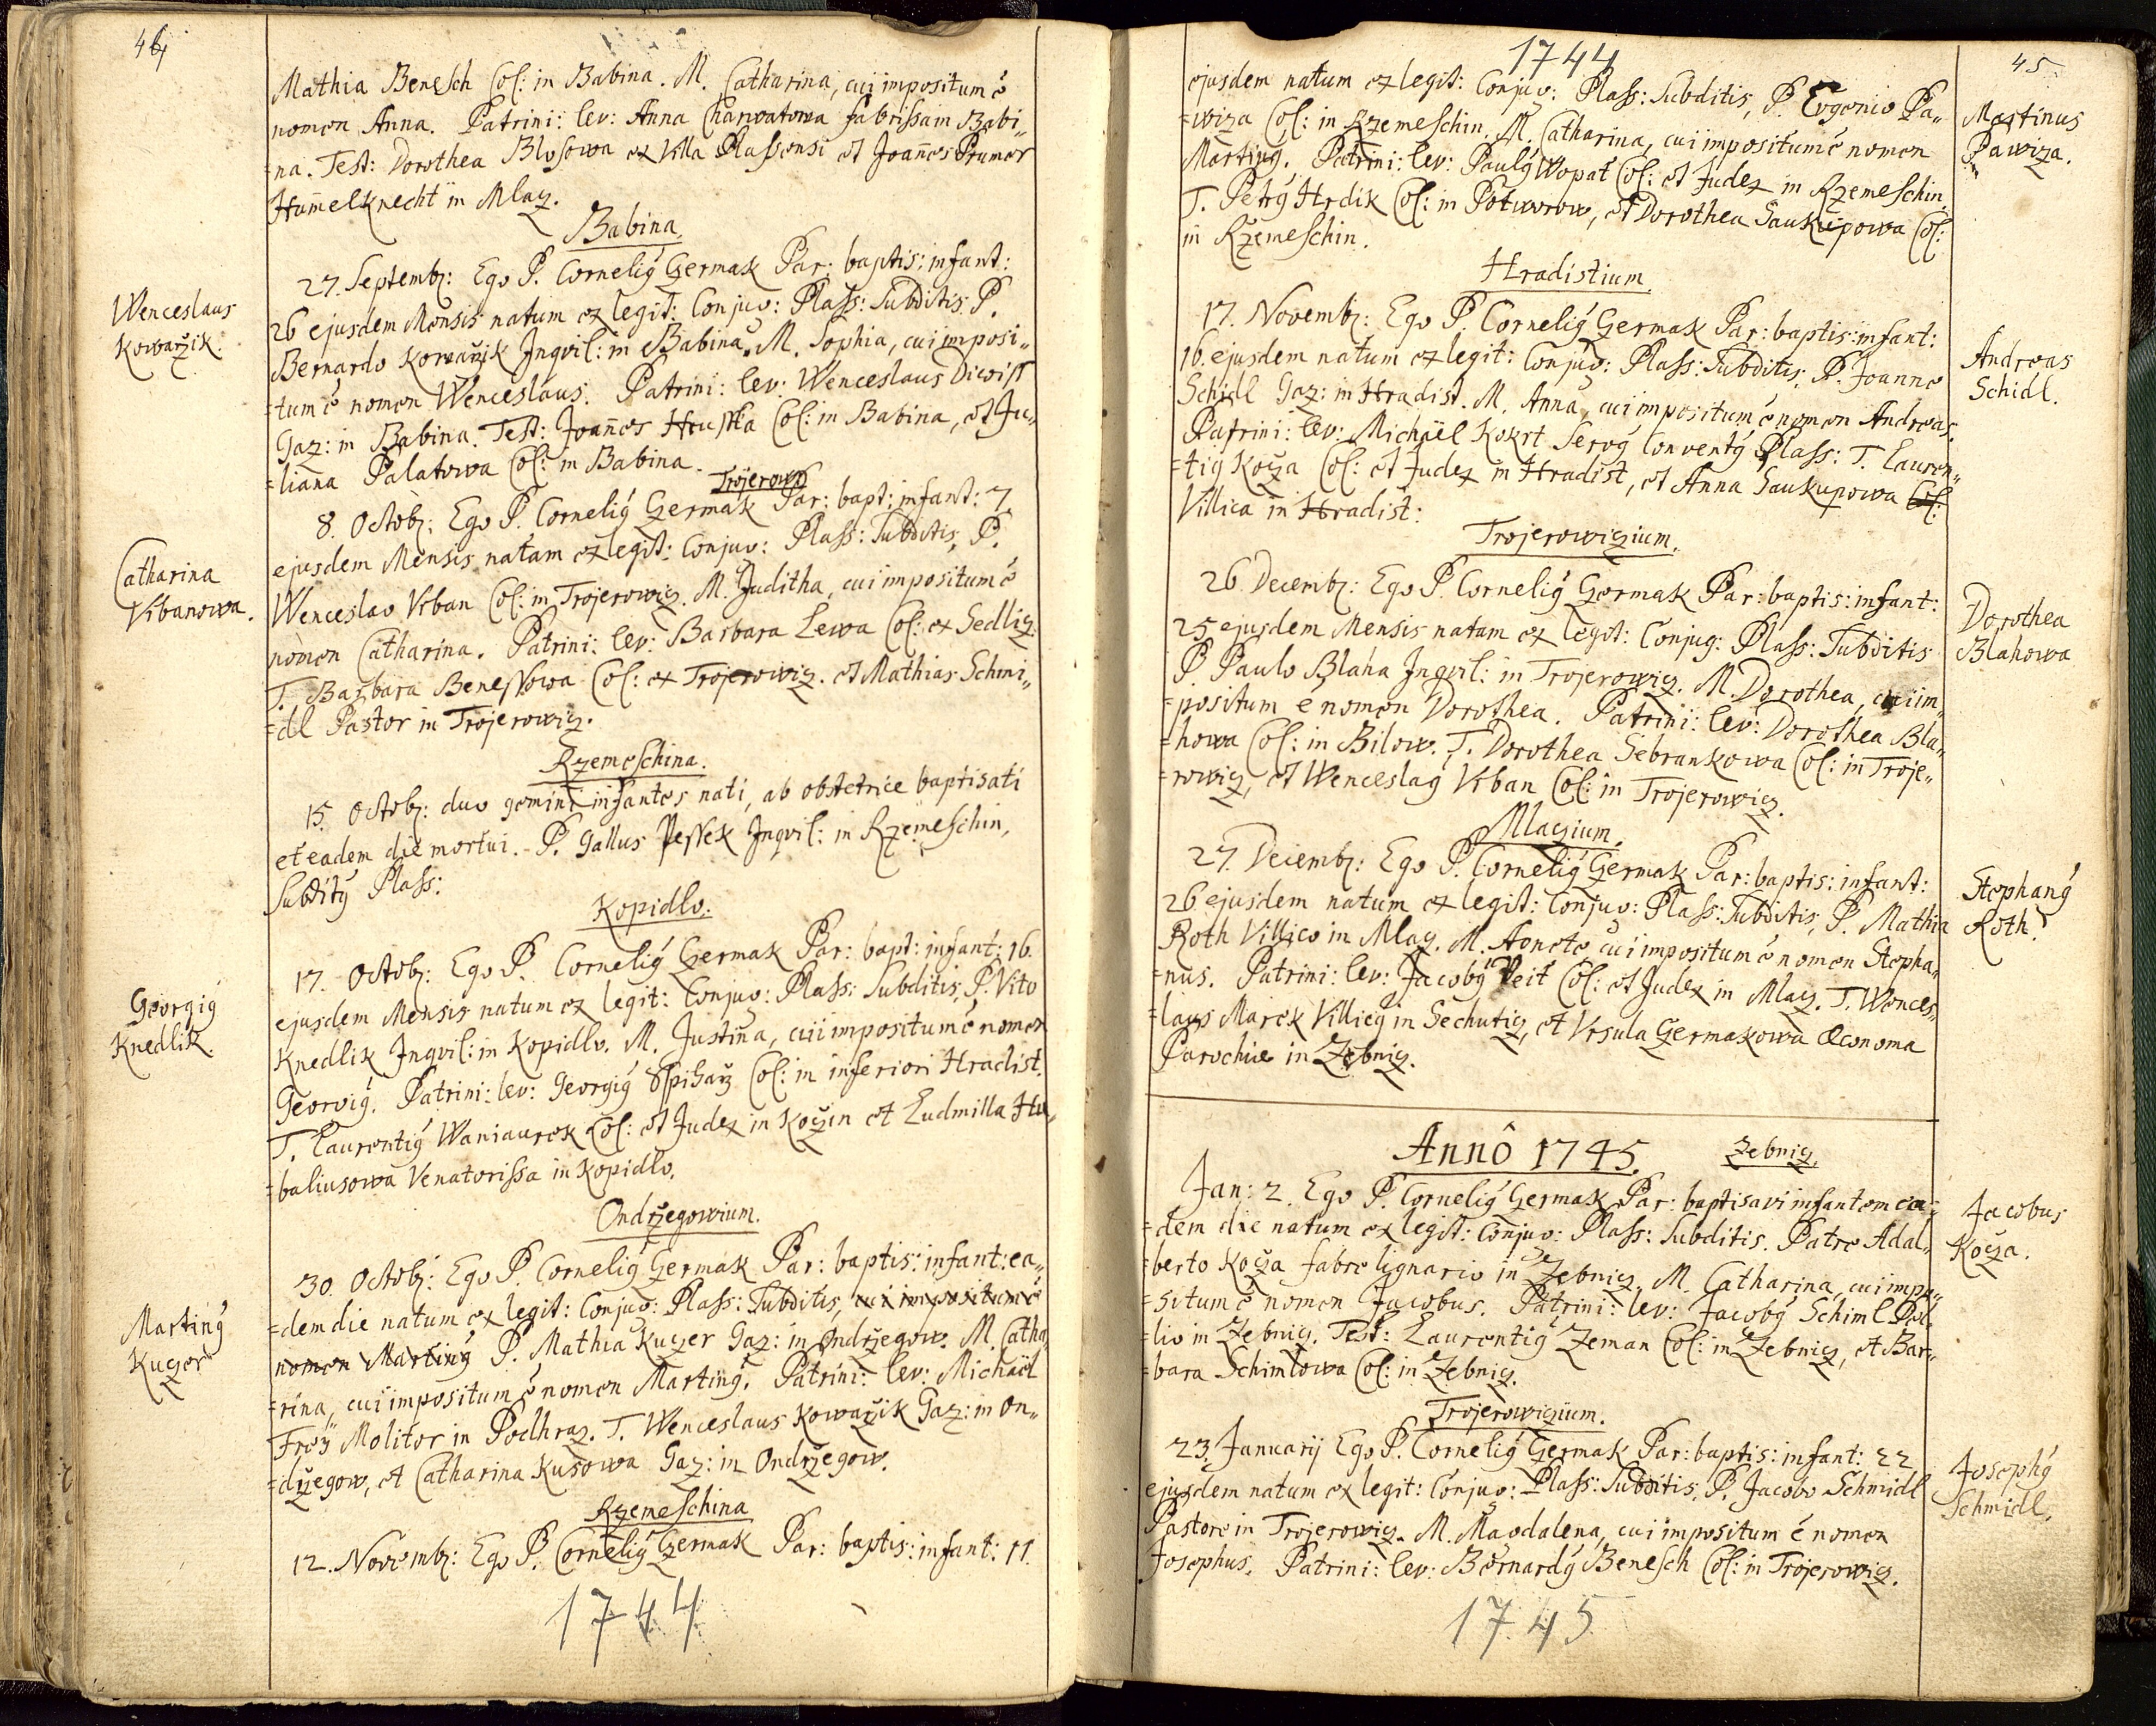 44
Mathia Benesch Col: in Babina. M. Catharina, cui impositum ē
nomen Anna. Patrini: lev: Anna Charvatowa fabrissa in Babi„
=na. Test: Dorothea Blosowa ex Villa Plassensi et Joan̄es Prumer
Hum̄elknecht in Mlaz.
Babina.
Wenceslaus
Kowarzik.
27. Septemb: Ego P. Cornelig Czermak Par: baptis: infant:
26 ejusdem Mensis natum ex legit: Conjug: Plass: Subditis, P.
Bernardo Kowarzik Inqvil: in Babina, M. Sophia, cui imposi„
=tum ē nomen Wenceslaus. Patrini: lev: Wenceslaus Diwiss
Gaz: in Babina. Test: Joan̄es Hruska Col: in Babina, et Ju„
=liana Palatowa Col: in Babina.
Trojerow
Catharina
Vrbanowa.
8. Octob: Ego P. Cornelig Czermak Par: bapt: infant: 7.
ejusdem Mensis natam ex legit: Conjug: Plass: Subditis, P.
Wenceslao Vrban Col: in Trojerowiz. M. Juditha, cui impositum ē
nomen Catharina. Patrini: lev: Barbara Lewa Col: ex Sedliz.
T. Barbara Benessowa Col: ex Trojerowiz. et Mathias Schmi„
=dl Pastor in Trojerowiz.
Rzemeschina.
15. Octob: duo gemini infantes nati, ab obstetrice baptisati
et eadem die mortui. P. Gallus Pessek Inqvil: in Rzemeschin,
Subditg Plass:
Kopidlo.
Georgig
Knedlik.
17. Octob: Ego P. Cornelig Czermak Par: bapt: infant: 16.
ejusdem Mensis natum ex legit: Conjug: Plass: Subditis, P. Vito
Knedlik Inqvil: in Kopidlo. M. Justina, cui impositum ē nomen
Georgig. Patrini: lev: Georgig Spisarz Col: in inferiori Hradist.
T. Laurentig Waniaurek Col: et Judex in Koczin et Ludmilla Hu„
=baliusowa Venatorissa in Kopidlo.
Ondrzegowium.
Marting
Kuczer
30. Octob: Ego P. Cornelig Czermak Par: baptis: infant: ea„
=dem die natum ex legit: Conjug: Plass: Subditis, cui impositum ē
nomen Marting P. Mathia Kuczer Gaz: in Ondrzegow. M. Catha„
=rina, cui impositum ē nomen Marting. Patrini: lev: Michaël
Frey Molitor in Podhraz. T. Wenceslaus Kowarzik Gaz: in On„
=drzegow, et Catharina Kusowa Gaz: in Ondrzegow.
Rzemeschina
12. Novemb: Ego P. Cornelig Czermak Par: baptis: infant: 11.
1744
1744
45
ejusdem natum ex legit: Conjug: Plass: Subditis, P. Evgenio Pa„
=wiza Col: in Rzemeschin. M. Catharina, cui impositum ē nomen
Marting. Patrini: lev: Paulg Wopat Col: et Judex in Rzemeschin.
T. Petrg Hrdik Col: in Potworow, et Dorothea Saukupowa Col:
in Rzemeschin.
Martinus
Pawiza.
Hradistium
17. Novemb: Ego P. Cornelig Czermak Par: baptis: infant:
16. ejusdem natum ex legit: Conjug: Plass: Subditis, P. Joanne
Schidl Gaz: in Hradist. M. Anna, cui impositum ē nomen Andreas.
Patrini: lev: Michäel Kokst Servg Conventg Plass: T. Lauren„
=tig Kocza Col: et Judex in Hradist, et Anna Saukupowa Col:
Villica in Hradist:
Andreas
Schidl.
Trojerowizium.
26 Decemb: Ego P. Cornelig Czermak Par: baptis: infant:
25 ejusdem Mensis natam ex legit: Conjug: Plass: Subditis
P. Paulo Blaha Inqvil: in Trojerowiz. M. Dorothea, cui im„
=positum ē nomen Dorothea. Patrini: lev: Dorothea Bla„
=howa Col: in Bilow. T. Dorothea Sebrankowa Col: in Troje„
=rowiz, et Wenceslag Vrban Col: in Trojerowiz.
Dorothea
Blahowa
Mlazium.
27. Decemb: Ego P. Cornelig Czermak Par: baptis: infant:
26 ejusdem natum ex legit: Conjug: Plass: Subditis, P. Mathia
Roth Villico in Mlaz. M. Agnete, cui impositum ē nomen Stepha„
=nus. Patrini: lev: Jacobg Veit Col: et Judex in Mlaz. T. Wences„
=laus Marek Villicg in Sechutiz, et Vrsula Czermakowa Œconoma
Parochiæ in Zebniz.
Stephang
Roth.
Annô 1745.
Zebniz.
Jan: 2. Ego P. Cornelig Czermak Par: baptisavi infantem ea„
=dem die natum ex legit: Conjug: Plass: Subditis. Patre Adal„
=berto Kocza fabro lignario in Zebniz, M. Catharina, cui impo„
=situm ē nomen Jacobus. Patrini: lev: Jacobg Schiml Pol„
=lio in Zebniz. Test: Laurentig Zeman Col: in Zebniz, et Bar„
=bara Schimlowa Col: in Zebniz.
Jacobus
Kocza.
Trojerowizium.
23. Januarij Ego P. Cornelig Czermak Par: baptis: infant: 22
ejusdem natum ex legit: Conjug: Plass: Subditis, P. Jacobo Schmidl
Pastore in Trojerowiz. M. Magdalena, cui impositum ē nomen
Josephus. Patrini: lev: Bernardg Benesch Col: in Trojerowiz.
Josephg
Schmidl.
1745